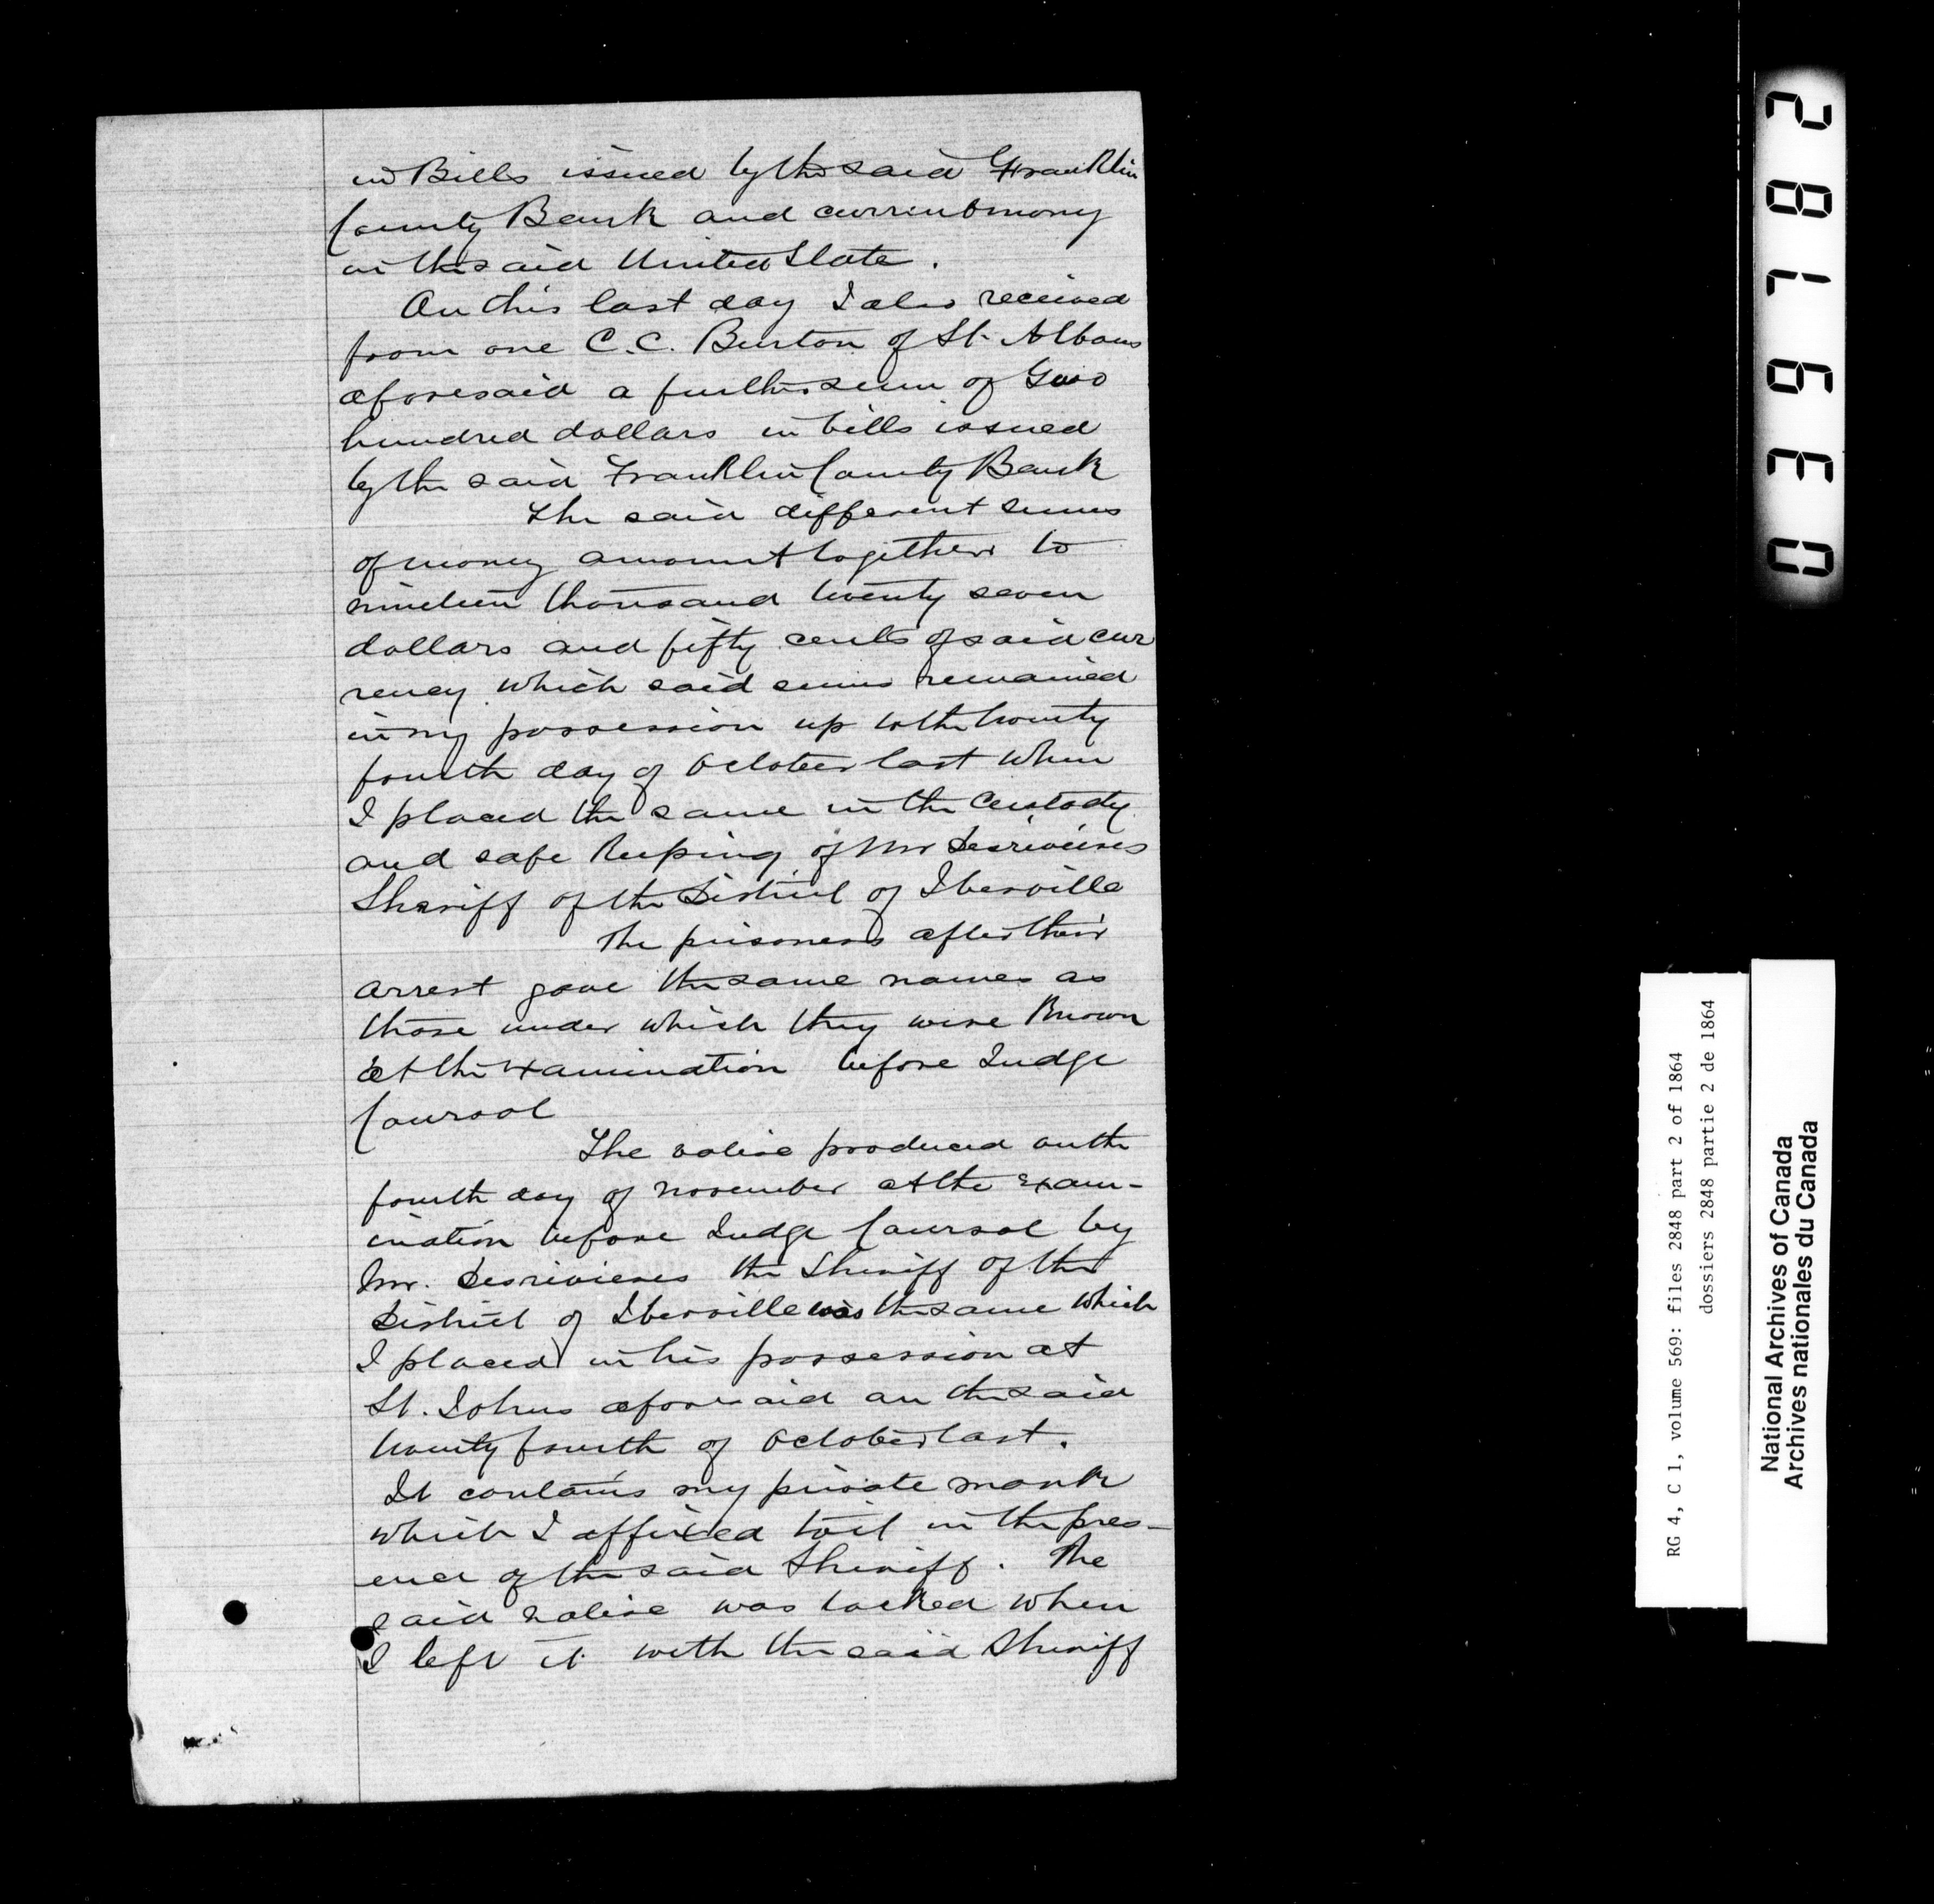 in Bills issued by the said Franklin
County Bank and current money
in the said United State.
On this last day I also received
from one C.C. Burton of St. Albans
aforesaid a further sum of Two
hundred dollars in bills issued
by the said Franklin County Bank
The said different sums
of money amount together to
nineteen thousand twenty seven
dollars and fifty cents of said cur
rency which said sums remained
in my possession up to the twenty
fourth day of October last when
I placed the same in the custody
and safe keeping of Mr Desrivieres
Sheriff of the District of Iberville
The prisoners after their
arrest gave the same names as
those under which they were known
at the examination before Judge
Coursol
The valise produced on the
fourth day of November at the exam-
ination before Judge Coursol by
Mr. Desrivieres the Sheriff of the
District of Iberville was the same which
I placed in his possession at
St. Johns aforesaid on the said
twenty fourth of October last.
It contains my private mark
which I affixed to it in the pres-
ence of the said Sheriff. The
said valise was locked when
I left it with the said Sheriff
039182
RG 4, C 1, volume 569: files 2848 part 2 of 1864
dossiers 2848 partie 2 de 1864
National Archives of Canada
Archives nationales du Canada